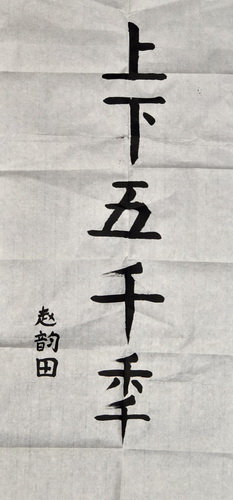 上下五千秊
赵韵田